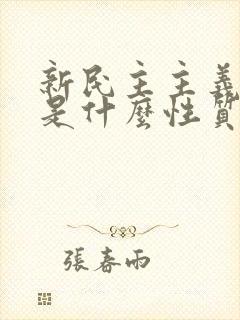 新民主主義
是什麼性質
張春雨